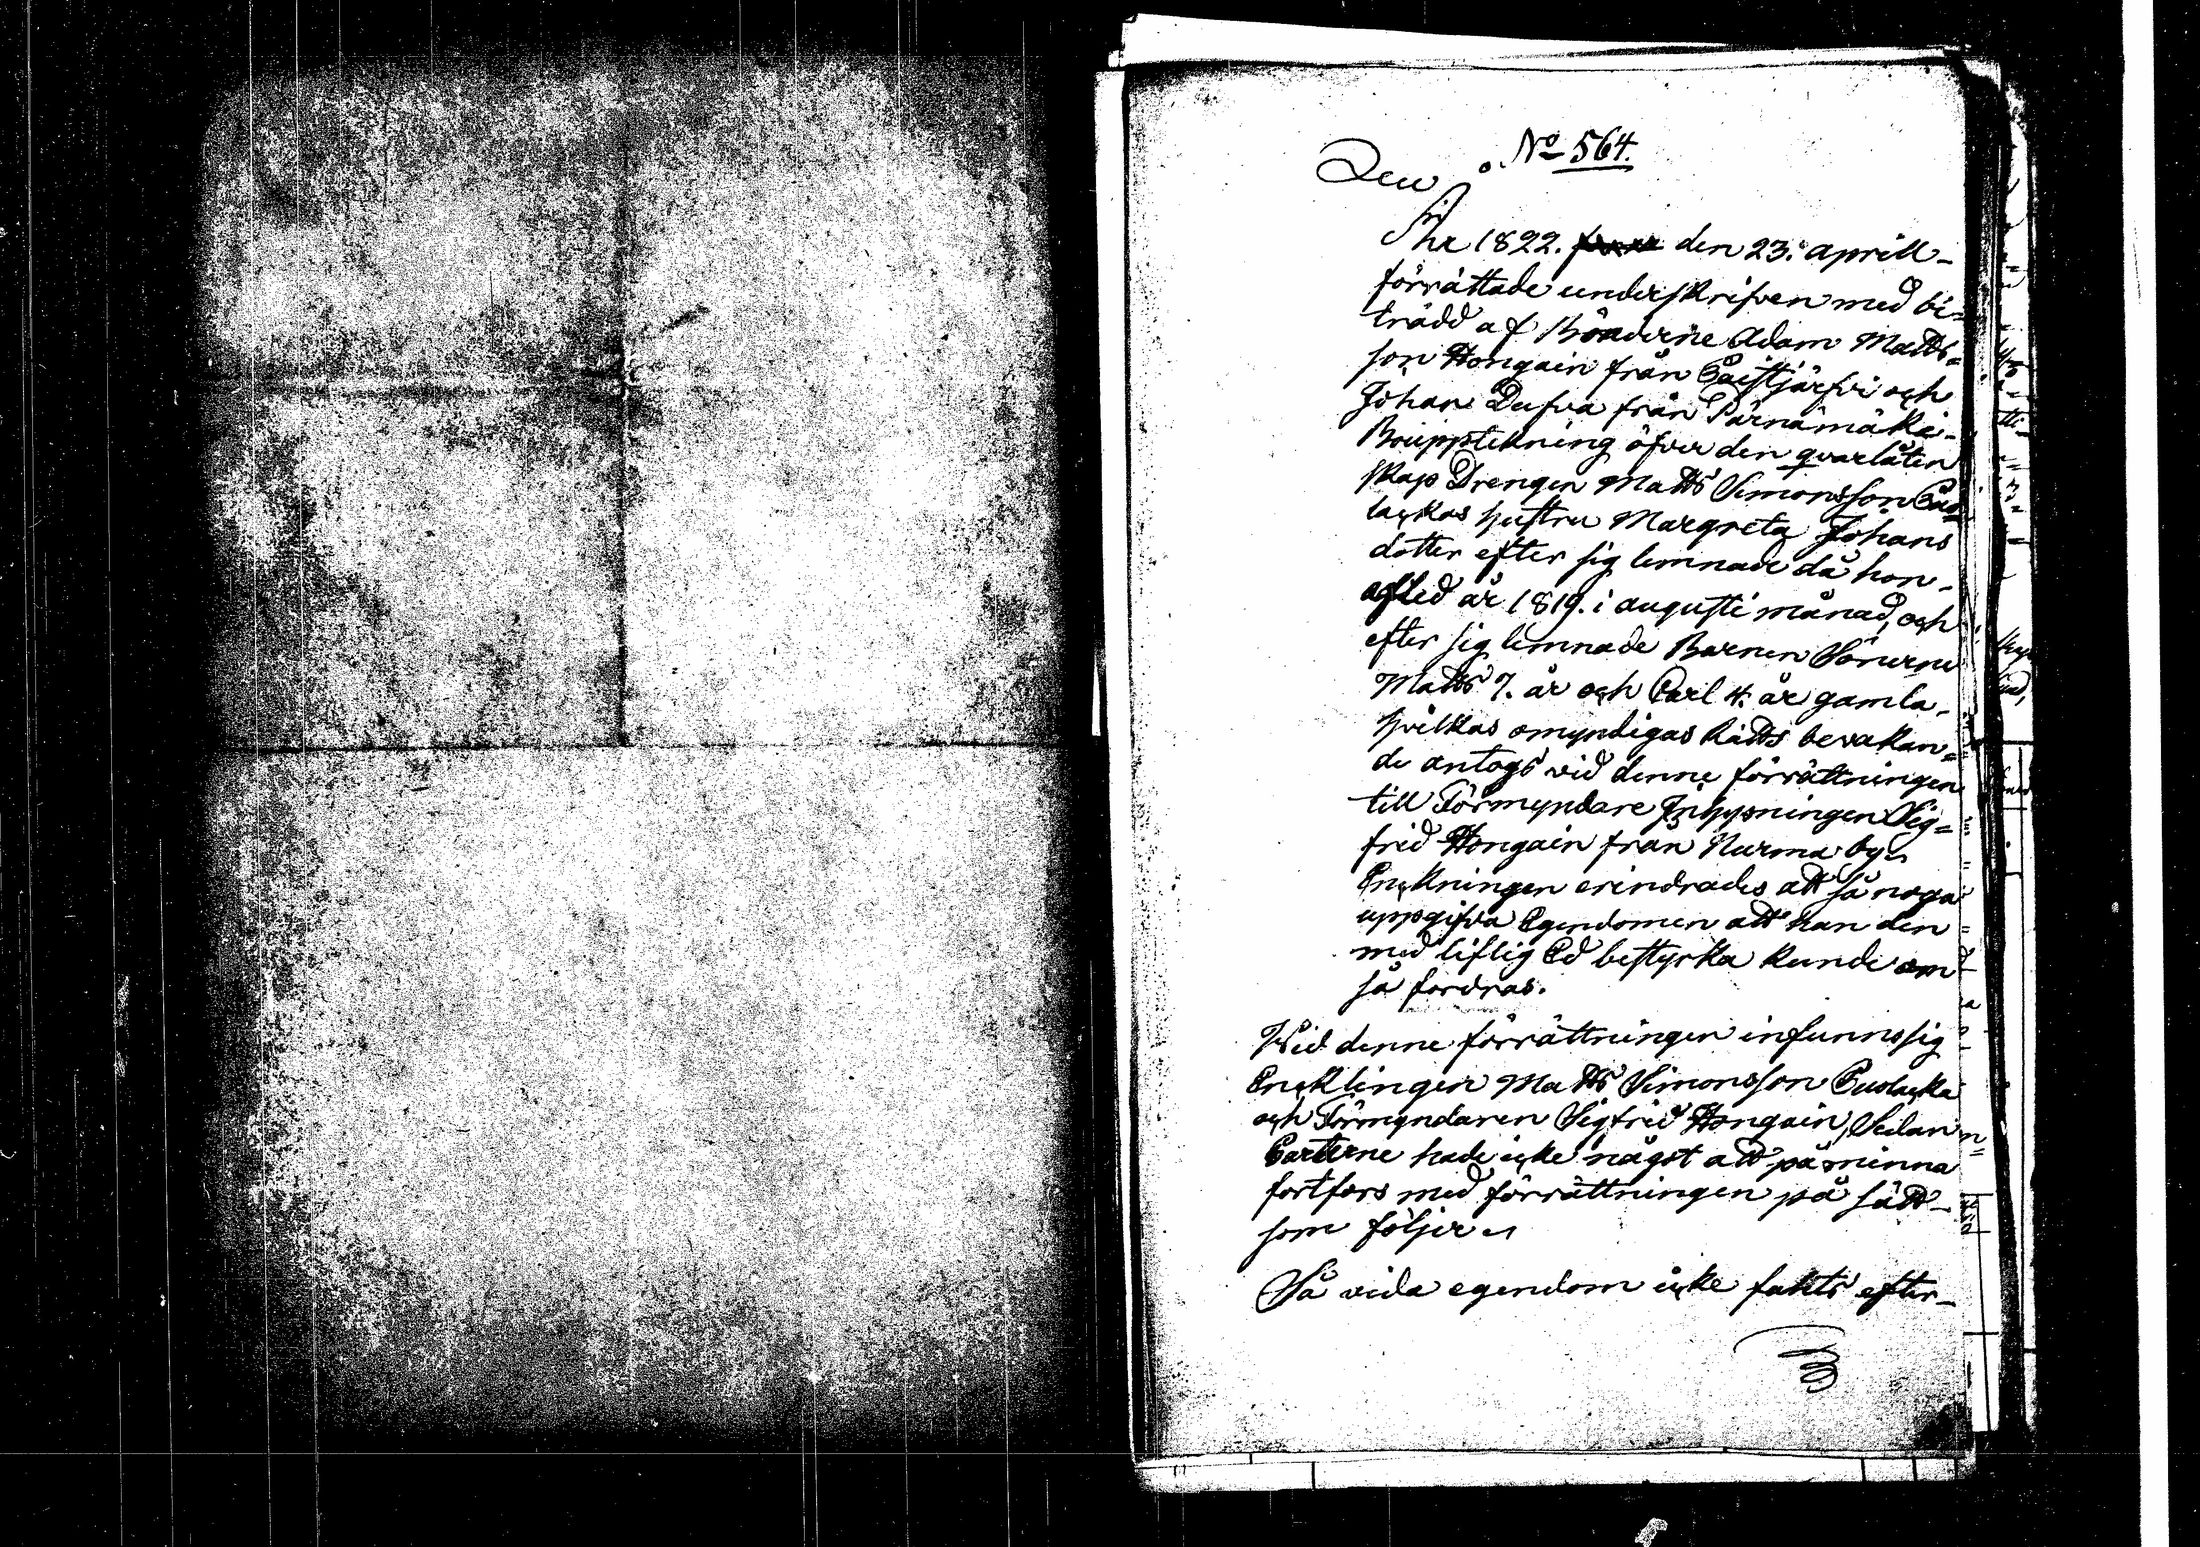 No 564.
Den
Åhr 1822. den 23. Aprill
förrättade underskrifven med bi-
trädd af Bönderne Adam Matts-
son Hongain från Paistjärfvi och
Johan Dufva från Pärnämäki
Bouppteckning öfver den qvarlåten
skap Drengen Matts Simonsson
lackas hustru Margreta Johans
dotter efter sig lemnade då hon
afled år 1819. i augusti månad, och
efter sig lemnade Barnen Sönerne
Matts 7. år och Carl 4. år gamla
hvilkas omyndigas Rätts bevakan-
de antogs vid denne förrättningen
till Förmyndare Inhysningen Sig-
frid Hongain från Nurma by
Encklningen erindrades att så noga
uppgifva Egendomen att han den
med liflig Ed bestyrka kunde om
så fordras.
Wid denne förrättningen infunns sig
Encklingen Matts Simonsson Puolacka
och Förmyndaren Sigfrid Hongain, Sedan
Parterne hade icke något att påminna
fortfors med förrättningen på sätt
som följer
Så vida egendom icke fants efter-